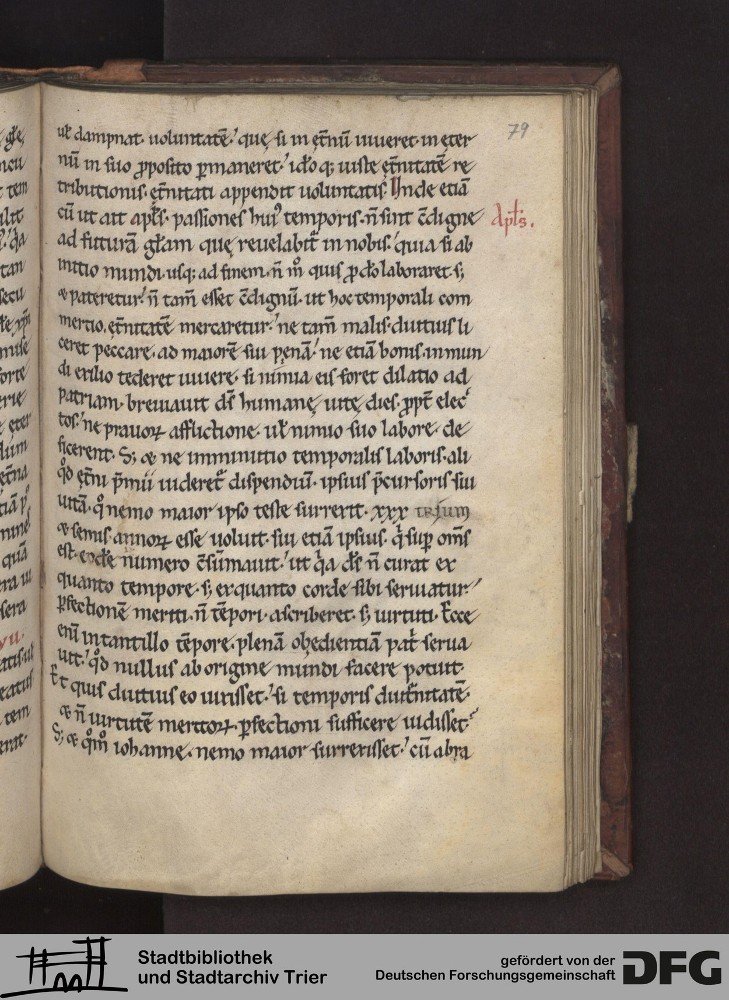 79
uł dampnat uoluntatē. quę si in ęt̄nū uiueret in ęter
nū in suo ꝓposito ꝑmaneret. idō q; iuste ęt̄nitatē re
tributionis ęt̄nitati appendit uoluntatis. Unde etiā
cū ut ait apłs. passiones huiꝰ temporis. n̄ sint c̄digne
Apłs.
ad futurā glam quę reuelabit in nobis. quia si ab
initio mundi. usq; ad finem. n̄ m̊ quis ꝓ dō laboraret. s;
& pateretur. n̄ tam̄ esset c̄dignū. ut hoc temporali com
mertio. ęt̄nitatē mercaretur. ne tam̄ malis. diutius li
ceret peccare. ad maiorē sui penā. ne etiā bonis. in mun
di exilio tederet uiuere. si nimia eis foret dilatio ad
patriam. breuiauit d̄s humanę uitę dies. ꝓpt̄ elec
tos. ne prauoꝝ afflictione. uł nimio suo labore. de
ficerent. S; & ne imminutio temporalis laboris. ali
qd̄ ęt̄ni p̄mii uideret̄ dispendiū. ipsius p̄cursoris sui
uitā. q̊ nemo maior ipso teste surrexit. xxx trium
& semis annoꝝ esse uoluit. sui etiā ipsius. q̇ sup̄ om̄s
est. eodē numero c̄sūmauit. ut q̇a d̄s n̄ curat ex
quanto tempore. s; ex quanto corde sibi seruiatur.
ꝑfectionē meriti. n̄ tēpori. ascriberet. s; uirtuti. Ecce
enī in tantillo tēpore. plenā obedientiā pat̄ serua
uit. qd̄ nullus ab origine mundi facere potuit.
Et quis diutius eo uixisset. si temporis diut̄nitatē.
& n̄ uirtutē meritoꝝ. ꝑfectioni sufficere uidisset.
S; & qm̄ iohanne. nemo maior surrexisset. cū abra
Stadtbibliothek
und Stadtarchiv Trier
gefördert von der
Deutschen Forschungsgemeinschaft
DFG